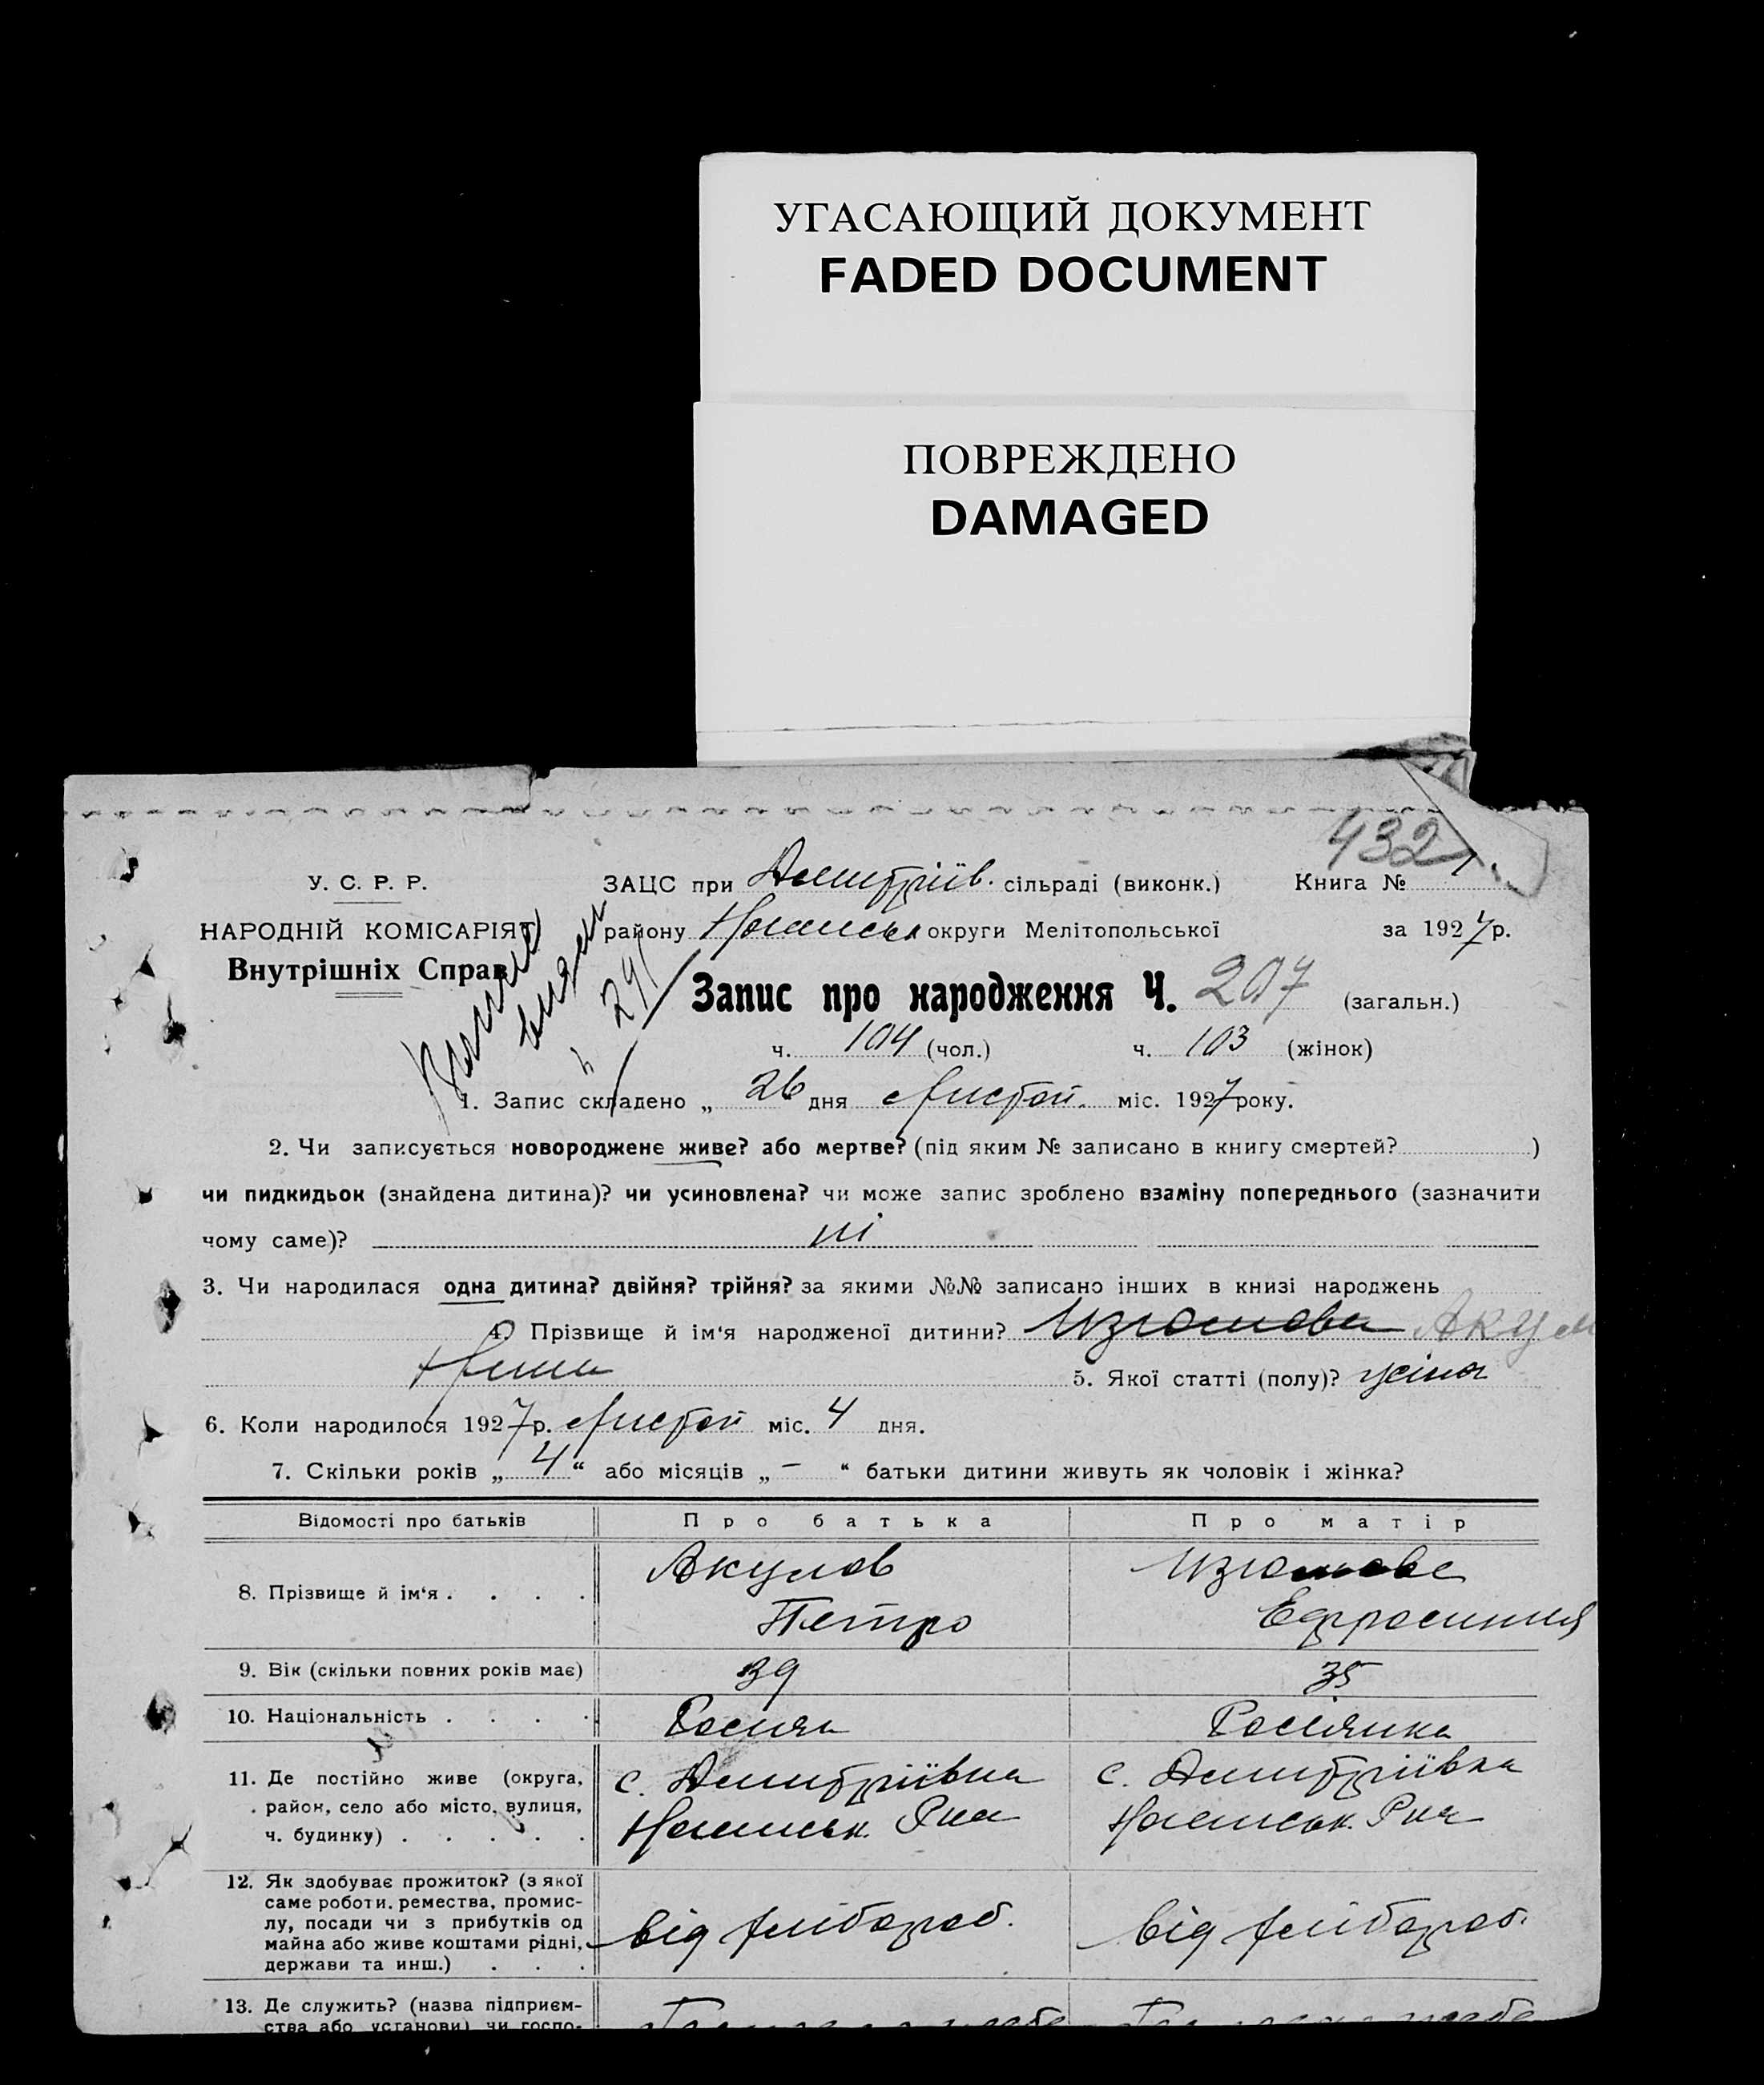 УГАСАЮЩИЙ ДОКУМЕНТ
FADED DOCUMENT
ПОВРЕЖДЕНО
DAMAGED
432
У. С. Р. Р.
ЗАЦС при Дмитріїв. сільраді (виконк.) Книга №
НАРОДНІЙ КОМІСАРІЯТ
району округи Мелітопольської за 1927 р.
Внутрішніх Справ
Запис про народження Ч. 207 (загальн.)
ч. 104 (чол.) ч. 103 (жінок)
1. Запис складено „ 26 дня Листоп. міс. 1927 року.
2. Чи записується новороджене живе? або мертве? (під яким № записано в книгу смертей? )
чи пидкидьок (знайдена дитина)? чи усиновлена? чи може запис зроблено взаміну попереднього (зазначити
чому саме)? ні
3. Чи народилася одна дитина? двійня? трійня? за якими №№ записано інших в книзі народжень
4. Прізвище й ім'я народженої дитини? Изюмова Акул
5. Якої статті (полу)? жіноч
6. Коли народилося 1927 р. Листоп міс. 4 дня.
7. Скільки років „ 4 “ або місяців „ – “ батьки дитини живуть як чоловік і жінка?
Відомості про батьків Про батька Про матір
8. Прізвище й ім'я . . . . Акулов Изюмова
Петро Ефросиния
9. Вік (скільки повних років має) 39 35
10. Національність . . . . Росиян Росіянка
11. Де постійно живе (округа, с. Дмитріївка с. Дмитріївка
район, село або місто, вулиця, Рна Рна
ч. будинку) . . . . .
12. Як здобуває прожиток? (з якої
саме роботи, ремества, промис-
лу, посади чи з прибутків од від хлібороб. від хлібороб.
майна або живе коштами рідні,
держави та инш.) . . .
13. Де служить? (назва підприєм-
ства або установи) чи госпо-